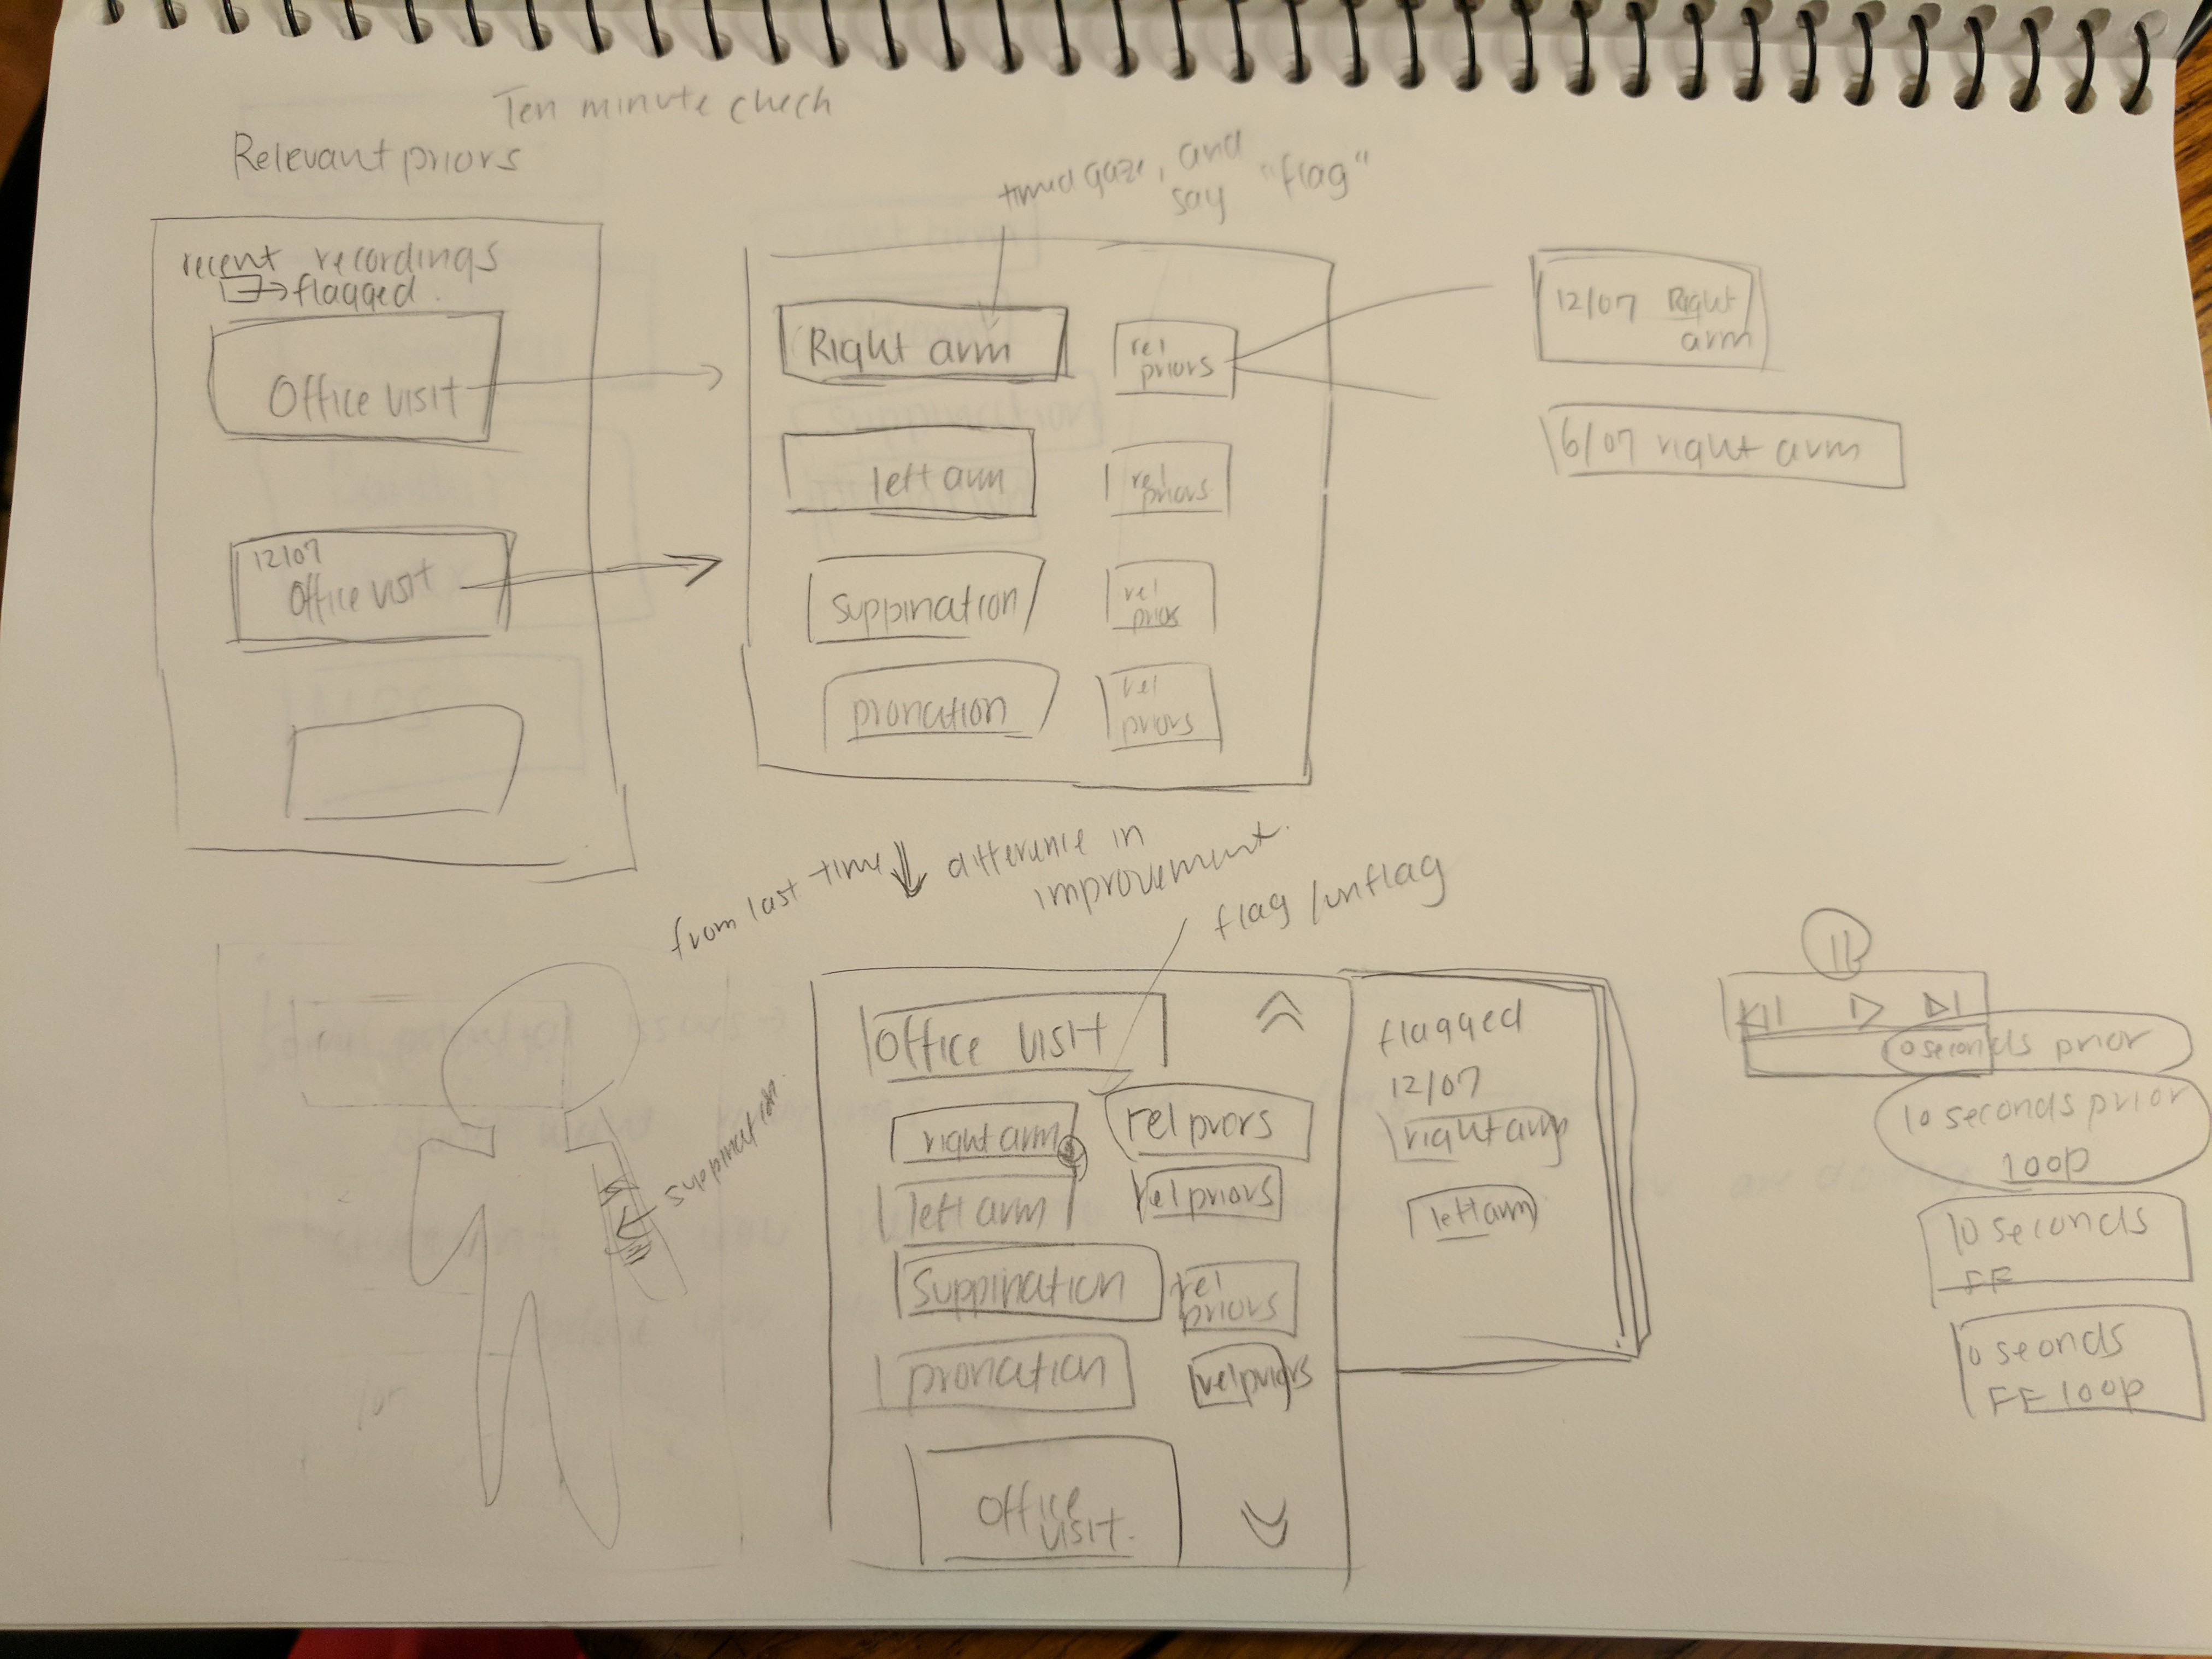 Ten minute check
Relevant priors
timed gaze, and
say "flag"
recent recordings
flagged.
Office visit
12/07
Office visit
Right arm
rel
priors
left arm
rel
priors
suppination
rel
prios
pronation
rel
priors
12/07 Right
arm
6/07 right arm
from last time
difference in
improvement.
flag/unflag
suppination.
Office visit
right arm
rel priors
left arm
rel priors
Suppination
rel
priors
pronation
rel priors
Office
visit.
flagged
12/07
right arm
left arm
0 seconds prior
10 seconds prior
loop
10 seconds
FF
10 seonds
FF loop